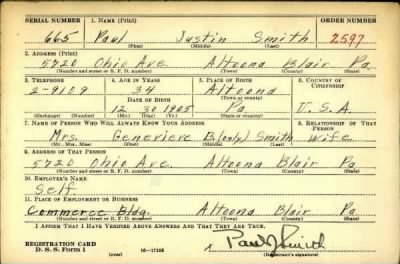 SERIAL NUMBER 1. NAME (Print) ORDER NUMBER
665 Paul Justin Smith 2597
(First) (Middle) (Last)
2. ADDRESS (Print)
5720 Ohio Ave. Altoona Blair Pa.
(Number and street or R. F. D. number) (Town) (County) (State)
3. TELEPHONE 4. AGE IN YEARS 5. PLACE OF BIRTH 6. COUNTRY OF CITIZENSHIP
2-9109 34 Altoona
DATE OF BIRTH (Town or county)
12 30 1905 Pa U.S.A.
(Exchange) (Number) (Mo.) (Day) (Yr.) (State or country)
7. NAME OF PERSON WHO WILL ALWAYS KNOW YOUR ADDRESS 8. RELATIONSHIP OF THAT PERSON
Mrs. Genevieve B(only) Smith Wife
(Mr., Mrs., Miss) (First) (Middle) (Last)
9. ADDRESS OF THAT PERSON
5720 Ohio Ave. Altoona Blair Pa
(Number and street or R. F. D. number) (Town) (County) (State)
10. EMPLOYER'S NAME
Self
11. PLACE OF EMPLOYMENT OR BUSINESS
Commerce Bldg. Altoona Blair Pa
(Number and street or R. F. D. number) (Town) (County) (State)
I AFFIRM THAT I HAVE VERIFIED ABOVE ANSWERS AND THAT THEY ARE TRUE.
REGISTRATION CARD
D. S. S. Form 1 (over) 16—17105 Paul J Smith
(Registrant's signature)